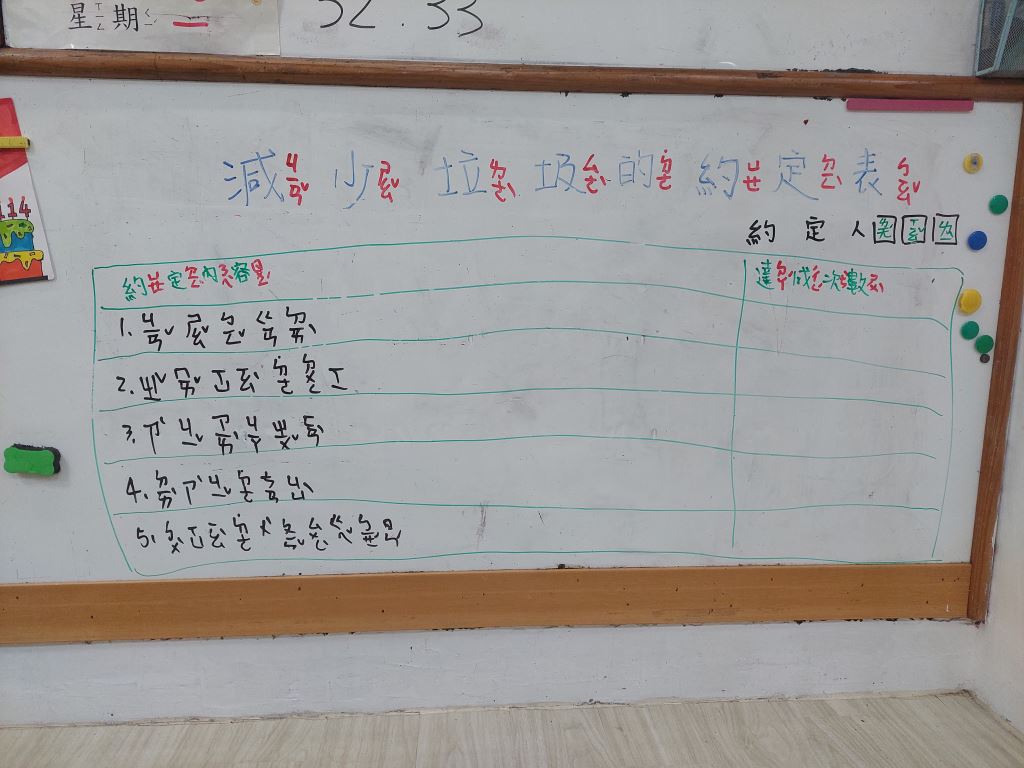 星ㄒㄧㄥ期ㄑㄧ
114
減ㄐㄧㄢˇ少ㄕㄠˇ垃ㄌㄜˋ圾ㄙㄜˋ的ㄉㄜ˙約ㄩㄝ定ㄉㄧㄥˋ表ㄅㄧㄠˇ
約定人
約ㄩㄝ定ㄉㄧㄥˋ內ㄋㄟˋ容ㄖㄨㄥˊ 達ㄉㄚˊ成ㄔㄥˊ次ㄘˋ數ㄕㄨˋ
1. ㄐㄧㄢˇ ㄕㄠˇ ㄅㄧㄥˇ ㄍㄢ ㄉㄞˋ
2. ㄓˇ ㄇㄞˇ ㄒㄩ ㄧㄠˋ ㄉㄜ˙ ㄉㄨㄥ ㄒㄧ
3. ㄗˋ ㄐㄧˇ ㄗㄞˋ ㄐㄧㄚ ㄓㄨˇ ㄈㄢˋ
4. ㄉㄞˋ ㄗˋ ㄐㄧˇ ㄉㄜ˙ ㄘㄢ ㄐㄩˋ
5. ㄅㄨˋ ㄒㄩ ㄧㄠˋ ㄉㄜ˙ ㄨˋ ㄆㄧㄣˇ ㄙㄨㄥˋ ㄍㄟˇ ㄅㄧㄝˊ ㄖㄣˊ